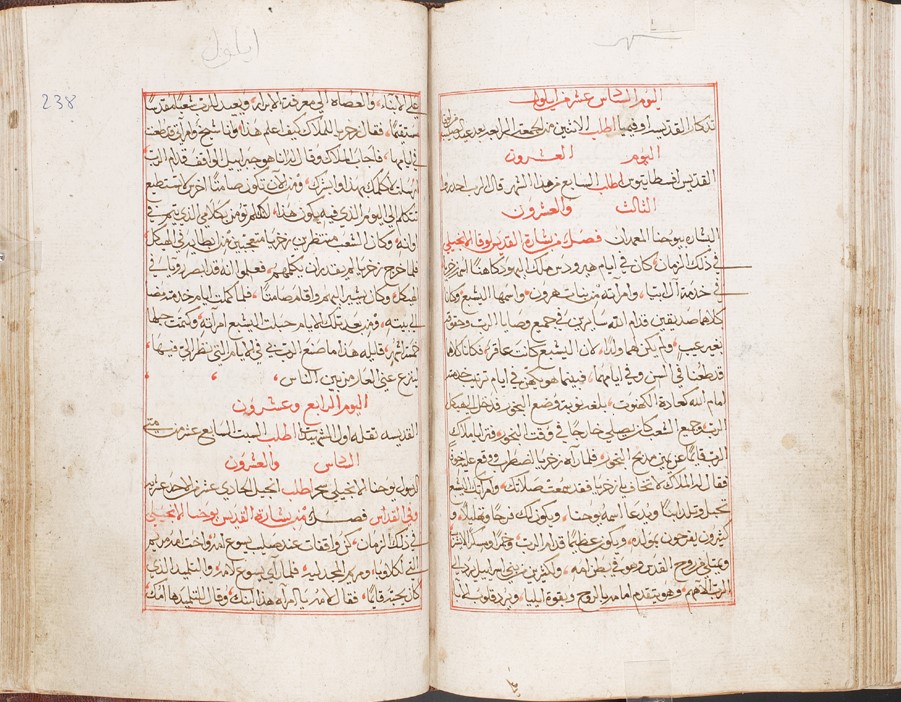 شهر
اليوم السادس عشر من ايلول
تذكار القديسه اوفيميا اطلب الاثنين من الجمعة الرابعه بعد عيد
اليوم العشرون
القديس افسطاتيوس اطلب السابع من هذا الشهر قال الرب احذروا
الثالث والعشرون
البشاره بيوحنا المعمدان فصل من بشارة القديس لوقا الانجيلي
في ذلك الزمان كان في ايام هيرودس ملك اليهود كاهنا اسمه زخريا
في خدمة آل ابيا وامراته من بنات هرون واسمها اليشبع وكانا
كلاهما صديقين قدام الله سايرين في جميع وصايا الرب وحقوقه
بغير عيب ولم يكن لهما ولدا لان اليشبع كانت عاقرا فكانا كلاهما
قد طعنا في السن وفي ايامهما فبينما هو يكهن في ايام ترتيب خدمته
امام الله كعادة الكهنوت بلغته نوبة وضع البخور فدخل الهيكل
الرب وجميع الشعب كان يصلي خارجا في وقت البخور فترايا ملاك
الرب قايما عن يمين مذبح البخور فلما راه زخريا اضطرب ووقع عليه خوف
فقال له الملاك لا تخاف يا زخريا فقد سمعت صلاتك وامراتك اليشبع
تحبل وتلد ابنا ويدعا اسمه يوحنا ويكون لك فرحا وتهليلا و
كثيرون يفرحون بمولده ويكون عظيما قدام الرب وخمرا وسكرا لا يشرب
ويمتلي من روح القدس وهو في بطن امه ولكثير من بني اسراييل يرد الى
الرب الاههم وهو يتقدم امامه بالروح وبقوة ايليا ويرد قلوب الابا
ايلول
238
على الابنا والعصاه الى معرفة الابرار ويعيد للرب شعبا مقدسا
مستقيما فقال زخريا للملاك كيف اعلم هذا وانا شيخ وامراتي قد طعنت
في ايامها فاجاب الملاك وقال له انا هو جبراييل الواقف قدام الرب
ارسلت اكلمك بهذا وابشرك ومن الان تكون صامتا اخرس لا تستطيع
تتكلم الى اليوم الذي فيه يكون هذا لانك لم تومن بكلامي الذي يتم في
اوانه وكان الشعب منتظرين زخريا متعجبين من ابطايه في الهيكل
فلما خرج زخريا لم يقدر ان يكلمهم فعلموا انه قد ابصر رويا في
الهيكل وكان يشير اليهم واقام صامتا فلما كملت ايام خدمته مضا
الى بيته ومن بعد تلك الايام حبلت اليشبع امراته وكتمت حبلها
خمسة اشهر قايله هذا ما صنع الرب بي في الايام التي نظر الي فيها
لينزع عني العار من بين الناس
اليوم الرابع وعشرون
القديسه تقله اول الشهيدات اطلب السبت السابع عشر من متى
السادس والعشرون
يوحنا الانجيلي سحر اطلب انجيل الحادي عشر
وفي القداس فصل من بشارة القديس يوحنا الانجيلي
في ذلك الزمان كن واقفات عند صليب يسوع امه واخت امه مريم
التي لاكلاوبا ومريم المجدليه فلما راى يسوع امه والتلميذ الذي
كان يحبه قايما فقال لامه يا امراه هذا ابنك وقال للتلميذ ها امك